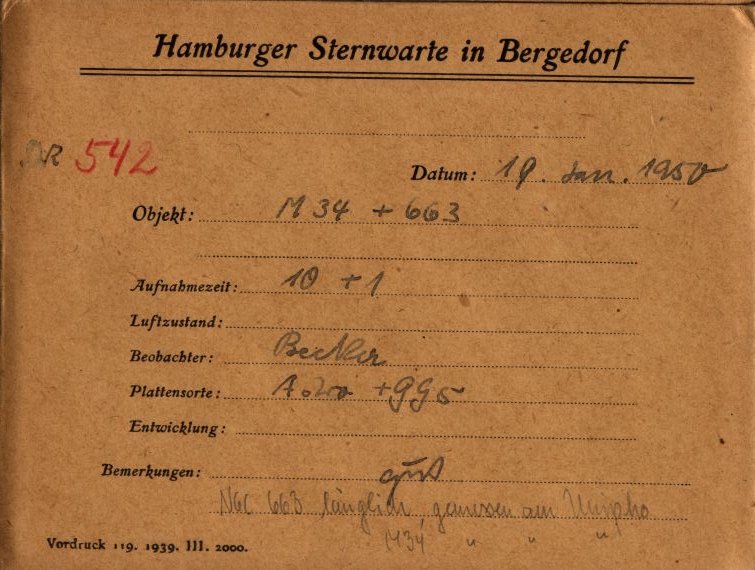 Hamburger Sternwarte in Bergedorf
NR 542
Datum: 19. Jan. 1950
Objekt: M 34 + 663
Aufnahmezeit: 10 + 1
Luftzustand:
Beobachter: Becker
Plattensorte: + 995
Entwicklung:
Bemerkungen: gut
NGC 663 länglich gemessen am
M34 " " "
Vordruck 119. 1939. III. 2000.